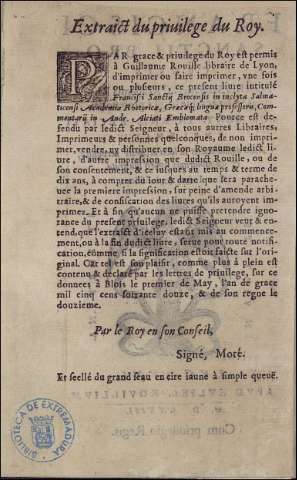 Extraict du priuilege du Roy.
PAR grace & priuilege du Roy est permis
à Guillaume Rouille libraire de Lyon,
d'imprimer ou faire imprimer, vne fois
ou plusieurs, ce present liure intitulé
Francisci Sanctij Brocensis in inclyta Salma-
ticensi Academia Rhetoricæ, Græcæq; linguæ professoris, Com-
mentarij in Andr. Alciati Emblemata. Pource est de-
fendu par ledict Seigneur, à tous autres Libraires,
Imprimeurs & personnes quelconques, de non impri-
mer, vendre, ny distribuer, en son Royaume ledict li-
ure, d'autre impression que dudict Rouille, ou de
son consentement, & ce iusques au temps & terme de
dix ans, à compter du iour & datte que sera paracheuee
la premiere impression, sur peine d'amende arbi-
traire, & de confiscation des liures qu'ils auroyent im-
primez. Et à fin qu'aucun ne puisse pretendre igno-
rance du present priuilege, ledict Seigneur veut & en-
tend, que l'extraict d'iceluy estant mis au commence-
ment, ou à la fin dudict liure, serue pour toute notifi-
cation, comme si la signification estoit faicte sur l'ori-
ginal. Car tel est son plaisir, comme plus à plein est
contenu & declaré par les lettres de priuilege, sur ce
donnees à Blois le premier de May, l'an de grace
mil cinq cens soixante douze, & de son regne le
douzieme.
Par le Roy en son Conseil,
Signé, Moré.
Et seellé du grand seau en cire iaune à simple queuë.
BIBLIOTECA DE EXTREMADURA